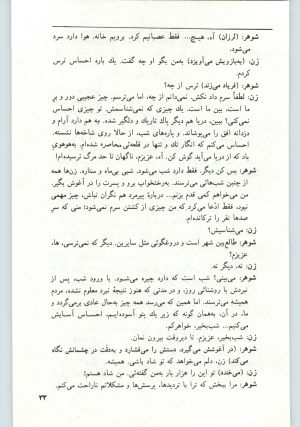 شوهر: (لرزان) آه، هیچ... فقط عصبانیم کرد. برویم خانه. هوا دارد سرد
می‌شود.
زن: (به‌بازویش می‌آویزد) به‌من بگو او چه گفت. یك باره احساس ترس
کردم.
شوهر: (فریاد می‌زند) ترس از چه؟
زن: لطفاً سرم داد نکش. نمی‌دانم از چه، اما می‌ترسم. چیز عجیبی دور و بر
ما است، بین ما است. یك چیزی که نمی‌شناسمش. تو چیزی احساس
نمی‌کنی؟ ببین، دریا هم دیگر یك تاریك و دلگیر شده. مه هم دارد آرام و
دزدانه افق را می‌پوشاند. و پاره‌های شب، از حالا روی شاخه‌ها نشسته.
احساس می‌کنم که انگار تك و تنها در قلعه‌ئی محاصره شده‌ام. به‌هوهوی
باد که از دریا می‌آید گوش کن. آه، عزیزم، ناگهان تا حد مرگ ترسیده‌ام!
شوهر: بس کن دیگر. فقط دارد شب می‌شود. شبی بی‌ماه و ستاره. زن‌ها همه
از چنین شب‌هائی می‌ترسند. به‌رختخواب برو و پسرت را در آغوش بگیر.
من می‌خواهم کمی قدم بزنم... دربارهٔ پیرمرد هم نگران نباش، چیز مهمی
نبود. فقط ادعا می‌کرد که من چیزی از کشتن سرم نمی‌شود؛ منی که سرِ
صدها نفر را ترکانده‌ام.
زن: می‌شناسیش؟
شوهر: طالع‌بین شهر است و دروغگوئی مثل سایرین. دیگر که نمی‌ترسی، ها،
عزیزم؟
زن: نه، دیگر نه.
شوهر: می‌بینی؟ شب است که دارد چیره می‌شود. با ورود شب، پس از
نبردش با روشنائی روز، و در مدتی که هنوز نتیجهٔ نبرد معلوم نشده، مردم
همیشه می‌ترسند. اما همین که می‌رسد همه چیز به‌حال عادی برمی‌گردد و
ما، در آن، به‌همان گونه که زیر یك پتو آسوده‌ایم، احساس آسایش
می‌کنیم... شب‌بخیر، خواهرکم.
زن: شب‌بخیر، عزیزم. تا دیروقت بیرون نمان.
شوهر: (در آغوشش می‌گیرد. دستش را می‌فشارد و به‌دقت در چشمانش نگاه
می‌کند) زن، دلم می‌خواهد که تو شاد باشی. همیشه.
زن: (می‌خندد) تو این را هزار بار به‌من گفته‌ئی. من شاد هستم!
شوهر: مرا ببخش که ترا با تردیدها، پرسش‌ها و مشکلاتم ناراحت می‌کنم.
۳۳